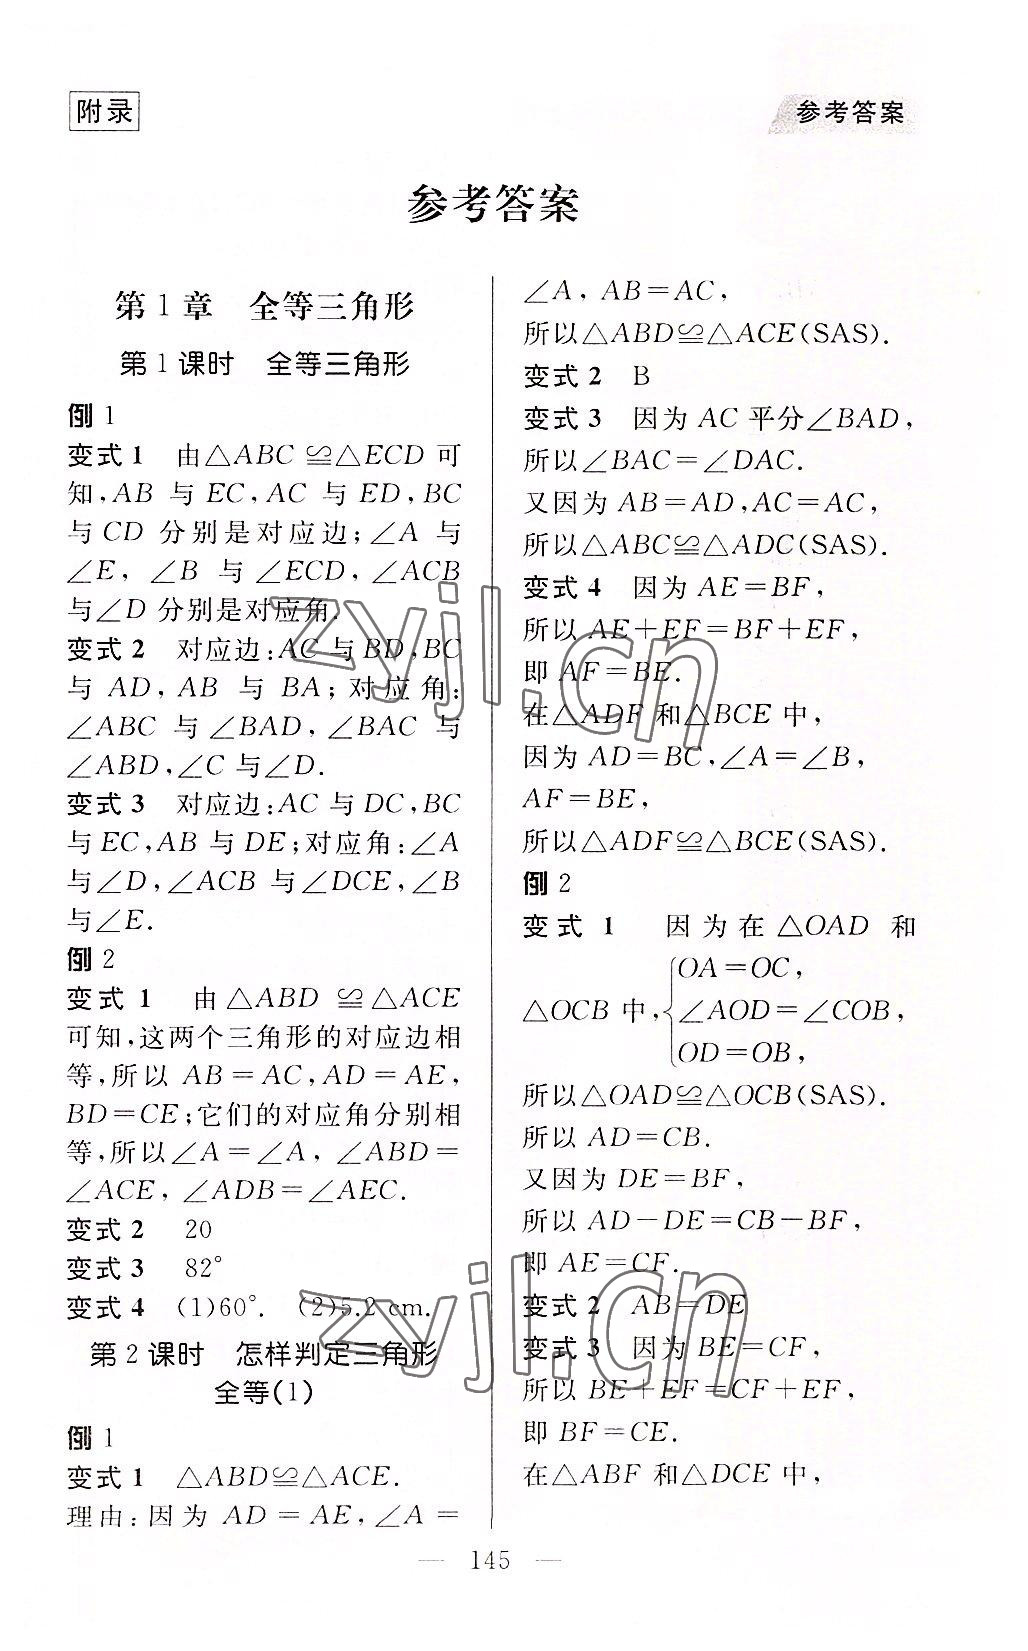 附录
参考答案
参考答案
第1章 全等三角形
第1课时 全等三角形
例1
变式1 由△ABC≌△ECD可
知,AB与EC,AC与ED,BC
与CD分别是对应边;∠A与
∠E,∠B与∠ECD,∠ACB
与∠D分别是对应角.
变式2 对应边:AC与BD,BC
与AD,AB与BA;对应角:
∠ABC与∠BAD,∠BAC与
∠ABD,∠C与∠D.
变式3 对应边:AC与DC,BC
与EC,AB与DE;对应角:∠A
与∠D,∠ACB与∠DCE,∠B
与∠E.
例2
变式1 由△ABD≌△ACE
可知,这两个三角形的对应边相
等,所以AB=AC,AD=AE,
BD=CE;它们的对应角分别相
等,所以∠A=∠A,∠ABD=
∠ACE,∠ADB=∠AEC.
变式2 20
变式3 82°
变式4 (1)60°. (2)5.2 cm.
第2课时 怎样判定三角形
全等(1)
例1
变式1 △ABD≌△ACE.
理由:因为AD=AE,∠A=
∠A,AB=AC,
所以△ABD≌△ACE(SAS).
变式2 B
变式3 因为AC平分∠BAD,
所以∠BAC=∠DAC.
又因为AB=AD,AC=AC,
所以△ABC≌△ADC(SAS).
变式4 因为AE=BF,
所以AE+EF=BF+EF,
即AF=BE.
在△ADF和△BCE中,
因为AD=BC,∠A=∠B,
AF=BE,
所以△ADF≌△BCE(SAS).
例2
变式1 因为在△OAD和
OA=OC,
△OCB中,{∠AOD=∠COB,
OD=OB,
所以△OAD≌△OCB(SAS).
所以AD=CB.
又因为DE=BF,
所以AD-DE=CB-BF,
即AE=CF.
变式2 AB=DE
变式3 因为BE=CF,
所以BE+EF=CF+EF,
即BF=CE.
在△ABF和△DCE中,
— 145 —
zyjl.cn
zyjl.cn